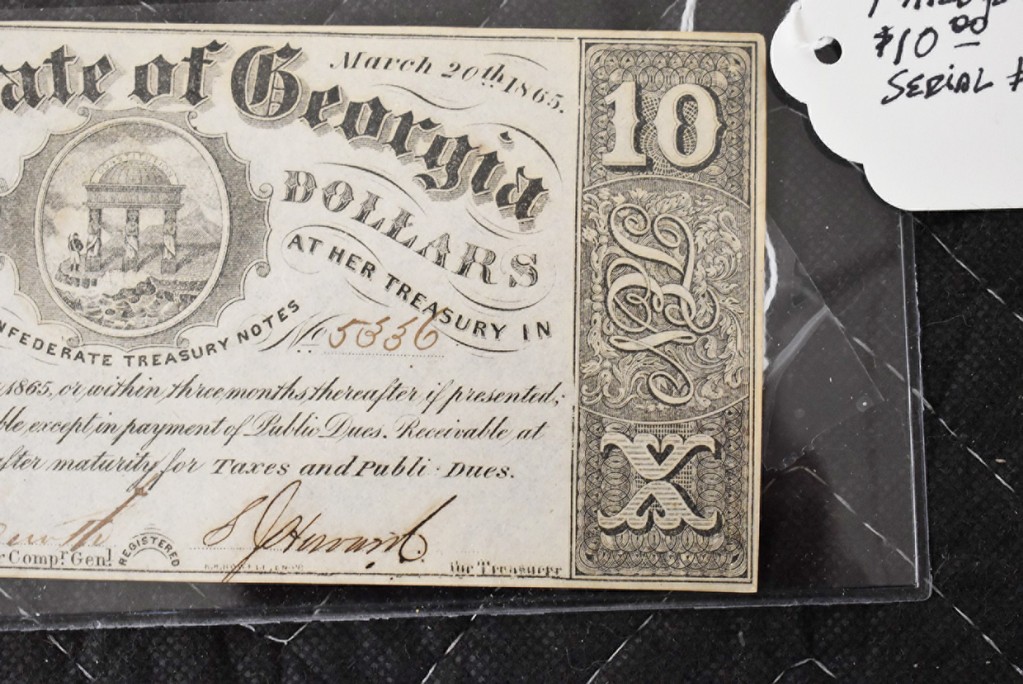 ate of Georgia
March 20th, 1865.
10
DOLLARS
AT HER TREASURY IN
NFEDERATE TREASURY NOTES
No 5336
1865, or within three months thereafter if presented;
ble except in payment of Public Dues. Receivable at
fter maturity for Taxes and Publi Dues.
X
Compr. Genl.
REGISTERED
for Treasurer
$10.00
SERIAL #